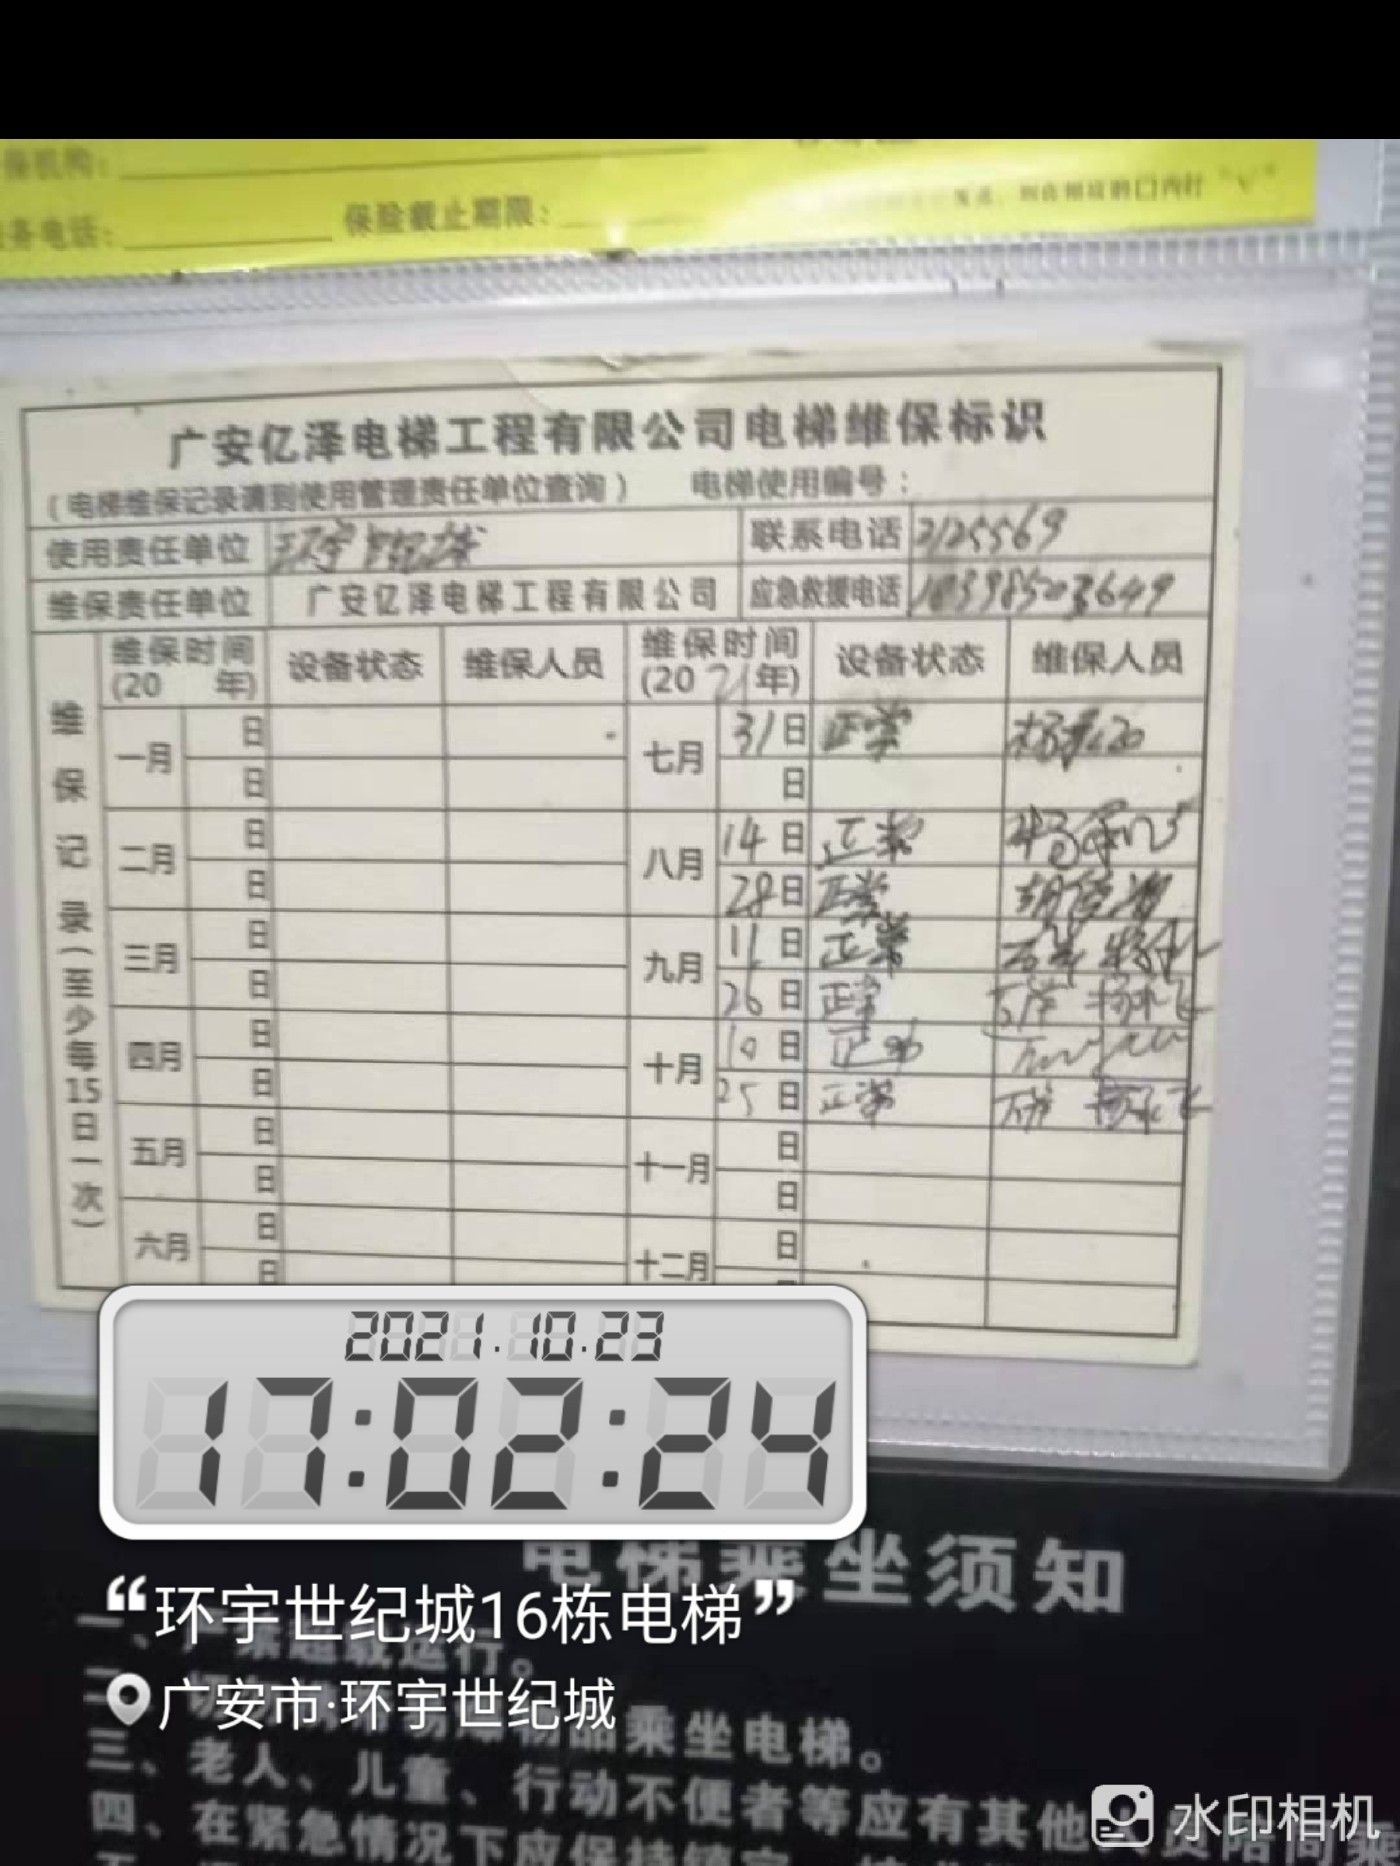 保机构：
务电话：
保险截止期限：
广安亿泽电梯工程有限公司电梯维保标识
（电梯维保记录请到使用管理责任单位查询） 电梯使用编号：
使用责任单位 环宇世纪城 联系电话 2125569
维保责任单位 广安亿泽电梯工程有限公司 应急救援电话
维保记录（至少每15日一次）
维保时间(20 年) 设备状态 维保人员 维保时间(2021年) 设备状态 维保人员
一月 日 七月 31日 正常
日 日
二月 日 八月 14日 正常
日 28日 正常
三月 日 九月 11日 正常
日 26日 正常
四月 日 十月 10日 正常
日 25日 正常
五月 日 十一月 日
日 日
六月 日 十二月 日
日
2021.10.23
17:02:24
电梯乘坐须知
“环宇世纪城16栋电梯”
广安市·环宇世纪城
乘坐电梯。
三、老人、儿童、行动不便者等应有其他
四、在紧急情况下应保持镇定
水印相机